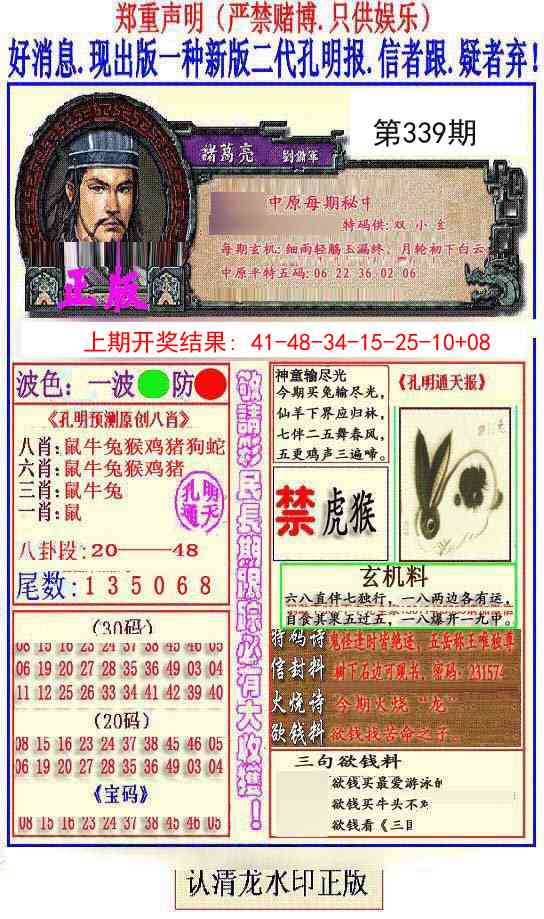 郑重声明（严禁赌博.只供娱乐）
好消息.现出版一种新版二代孔明报.信者跟.疑者弃!
第339期
諸葛亮 劉備軍
中原每期秘中
特码供:双 小 主
每期玄机:细雨轻觞玉漏终，月轮初下白云
中原平特五码:06 22 36 02 06
正版
上期开奖结果: 41-48-34-15-25-10+08
波色：一波 防
《孔明预测原创八肖》
八肖:鼠牛兔猴鸡猪狗蛇
六肖:鼠牛兔猴鸡猪
三肖:鼠牛兔
一肖:鼠
孔明
通天
八卦段:20——48
尾数:135068
(30码)
08 15 16 23 24 37 38 45 46 05
06 19 20 27 28 30 29 03 42 04
11 12 25 26 33 34 41 42 39 40
(20码)
08 15 16 23 24 37 38 45 46 05
06 19 20 27 28 30 29 03 42 04
《宝码》
08 15 16 23 24 37 38 45 46 05
敬請彩民長期跟踪必有大收獲！
神童输尽光
今期买兔输尽光，
仙羊下界应归林，
七伴二五舞春风，
五更鸡声三遍啼。
《孔明通天报》
禁 虎猴
玄机料
六八直伴七独行，一八两边各有运，
自食其果五过五，一八爆开一九中。
特码诗 鬼怪逢时皆绝运，五岳称王唯独尊
信封料 树下石边可观书，密码：231574
火烧诗 今期火烧“龙”
欲钱料 欲钱找苦命之子。
三句欲钱料
欲钱买最爱游泳的
欲钱买牛头不对
欲钱看《三国
认清龙水印正版